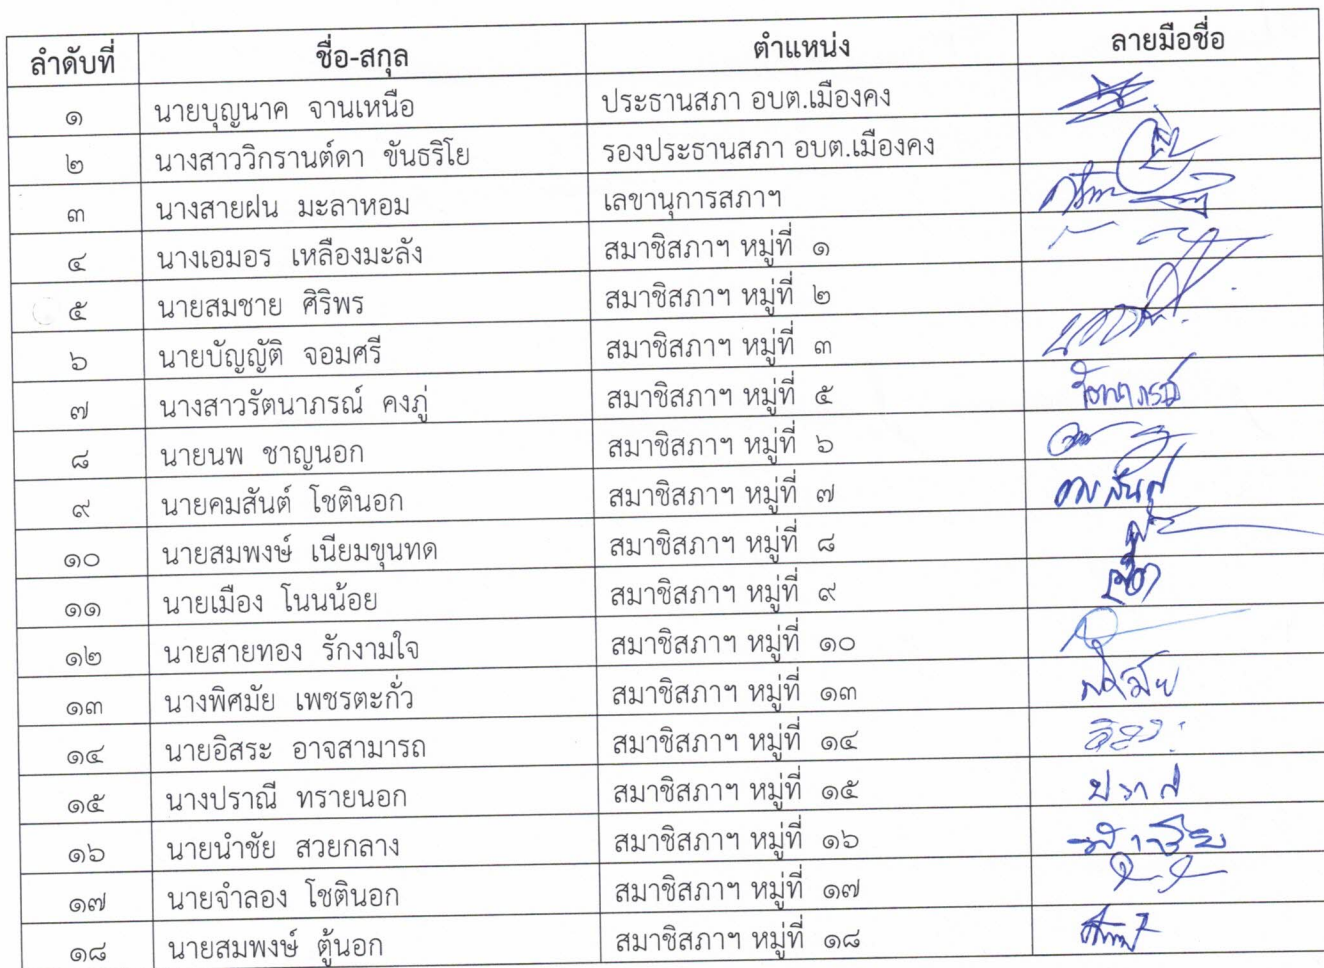 ลำดับที่ ชื่อ-สกุล ตำแหน่ง ลายมือชื่อ
๑ นายบุญนาค จานเหนือ ประธานสภา อบต.เมืองคง
๒ นางสาววิกรานต์ดา ขันธริโย รองประธานสภา อบต.เมืองคง
๓ นางสายฝน มะลาหอม เลขานุการสภาฯ
๔ นางเอมอร เหลืองมะลัง สมาชิสภาฯ หมู่ที่ ๑
๕ นายสมชาย ศิริพร สมาชิสภาฯ หมู่ที่ ๒
๖ นายบัญญัติ จอมศรี สมาชิสภาฯ หมู่ที่ ๓
๗ นางสาวรัตนาภรณ์ คงภู่ สมาชิสภาฯ หมู่ที่ ๕
๘ นายนพ ชาญนอก สมาชิสภาฯ หมู่ที่ ๖
๙ นายคมสันต์ โชตินอก สมาชิสภาฯ หมู่ที่ ๗ คมสันต์
๑๐ นายสมพงษ์ เนียมขุนทด สมาชิสภาฯ หมู่ที่ ๘
๑๑ นายเมือง โนนน้อย สมาชิสภาฯ หมู่ที่ ๙
๑๒ นายสายทอง รักงามใจ สมาชิสภาฯ หมู่ที่ ๑๐
๑๓ นางพิศมัย เพชรตะกั่ว สมาชิสภาฯ หมู่ที่ ๑๓ พิศมัย
๑๔ นายอิสระ อาจสามารถ สมาชิสภาฯ หมู่ที่ ๑๔ อิสระ
๑๕ นางปราณี ทรายนอก สมาชิสภาฯ หมู่ที่ ๑๕
๑๖ นายนำชัย สวยกลาง สมาชิสภาฯ หมู่ที่ ๑๖ นำชัย
๑๗ นายจำลอง โชตินอก สมาชิสภาฯ หมู่ที่ ๑๗
๑๘ นายสมพงษ์ ตู้นอก สมาชิสภาฯ หมู่ที่ ๑๘